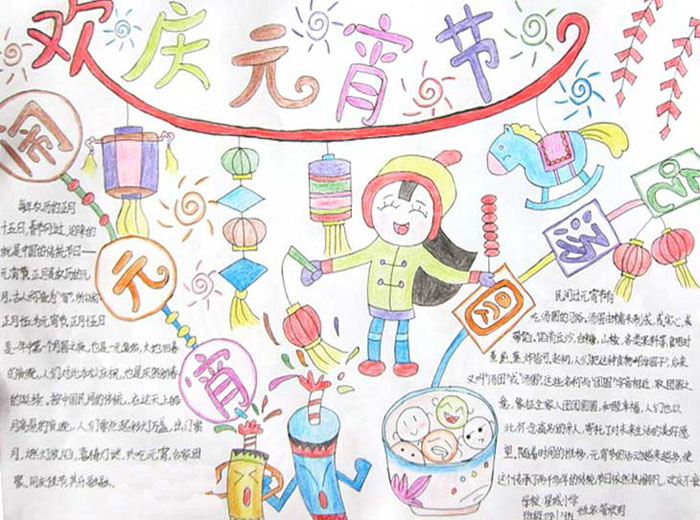 欢庆元宵节
闹元宵
每年农历的正月
十五日,春节刚过,迎来的
就是中国的传统节日——
元宵节,正月是农历的元
月,古人称夜为"宵",所以称
正月十五为元宵节。正月十五日
是一年中第一个月圆之夜,也是一元复始,大地回春
的夜晚,人们对此加以庆祝,也是庆贺新春
的延续。按中国民间的传统,在这天上皓
月高悬的夜晚,人们要点起彩灯万盏,出门赏
月、燃灯放焰、喜猜灯谜、共吃元宵、合家团
聚、同庆佳节、其乐融融。
民间过元宵节有
吃汤圆的习俗。汤圆由糯米制成,或实心,或
带馅。馅有豆沙、白糖、山楂、各类果料等,食用时
煮、煎、蒸、炸皆可。起初,人们把这种食物叫浮圆子,后来
又叫"汤团"或"汤圆",这些名称与"团圆"字音相近,取团圆之
意,象征全家人团团圆圆,和睦幸福,人们也以
此怀念离别的亲人,寄托了对未来生活的美好愿
望。随着时间的推移,元宵节的活动越来越多,使
这个传承了两千多年的传统节日依然热闹非凡,欢庆不衰
学校:星城小学
班级 姓名